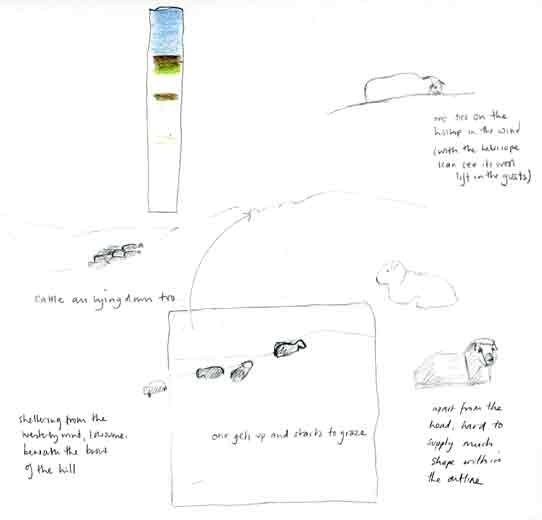 one lies on the
hump in the wind
(with the telescope
I can see its wool
lift in the gusts)
cattle all lying down too
one gets up and starts to graze
sheltering from the
westerly wind, I assume,
beneath the brow
of the hill
apart from the
head, hard to
supply much
shape within
the outline